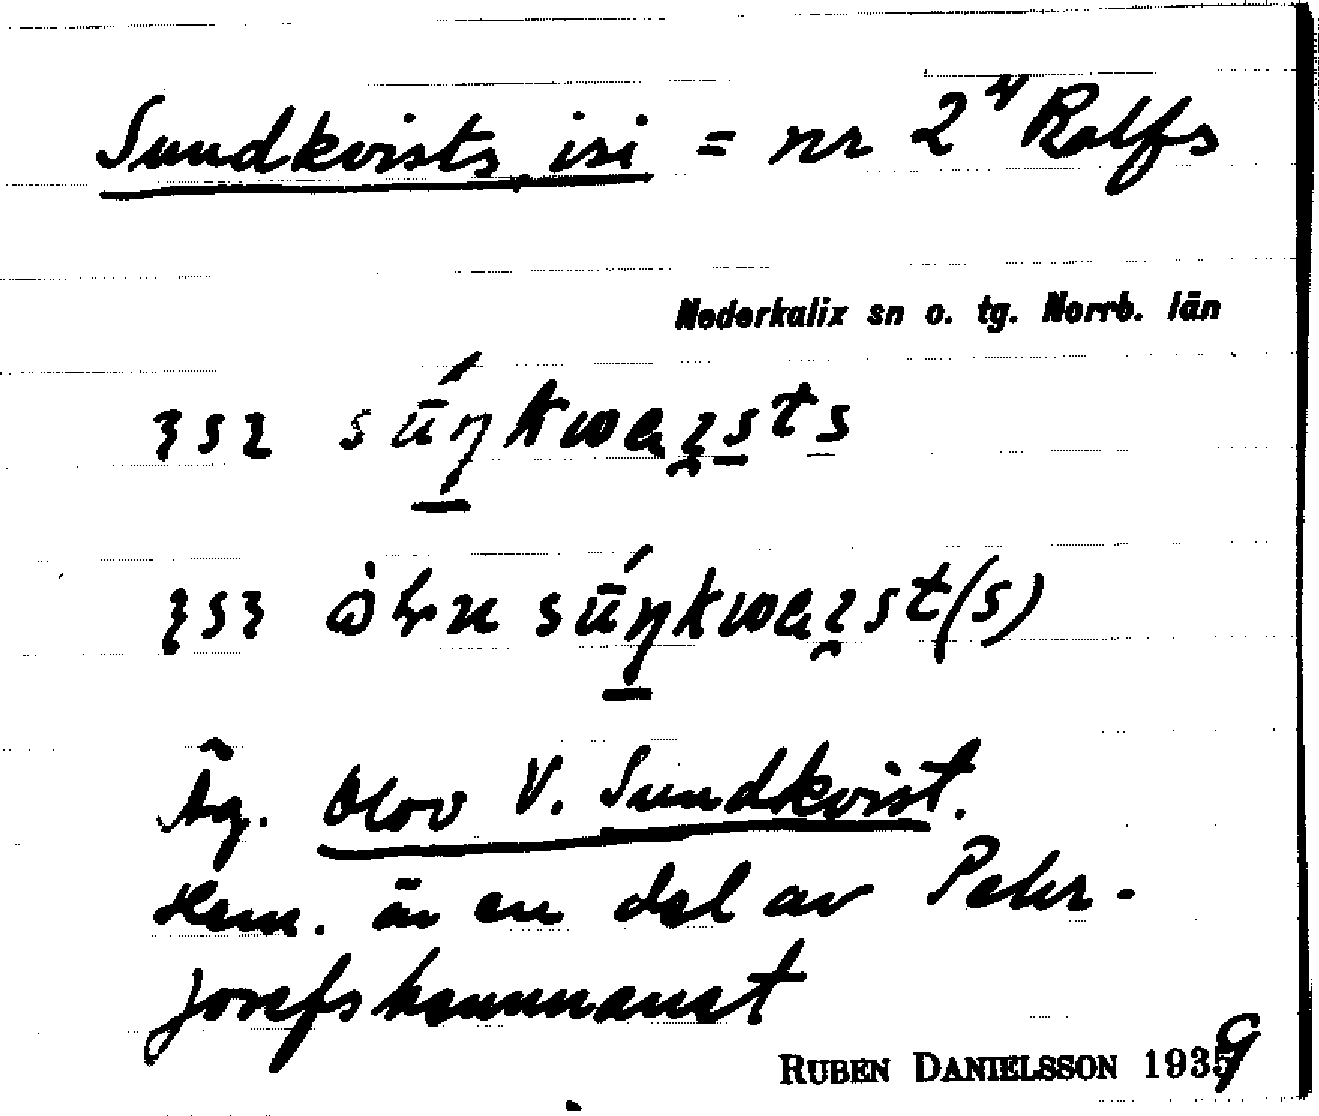 Sundkvists, isi = nr 2⁴ Rolfs
Nederkalix sn o. tg. Norrb. län
ꝫsꝫ sū́ŋkwaʐsts
ꝫsꝫ sū́ŋkwaʐst(s)
Äg. Olov V. Sundkvist.
Hem. är en del av Pehr-
josefshemmanet
RUBEN DANIELSSON 1939